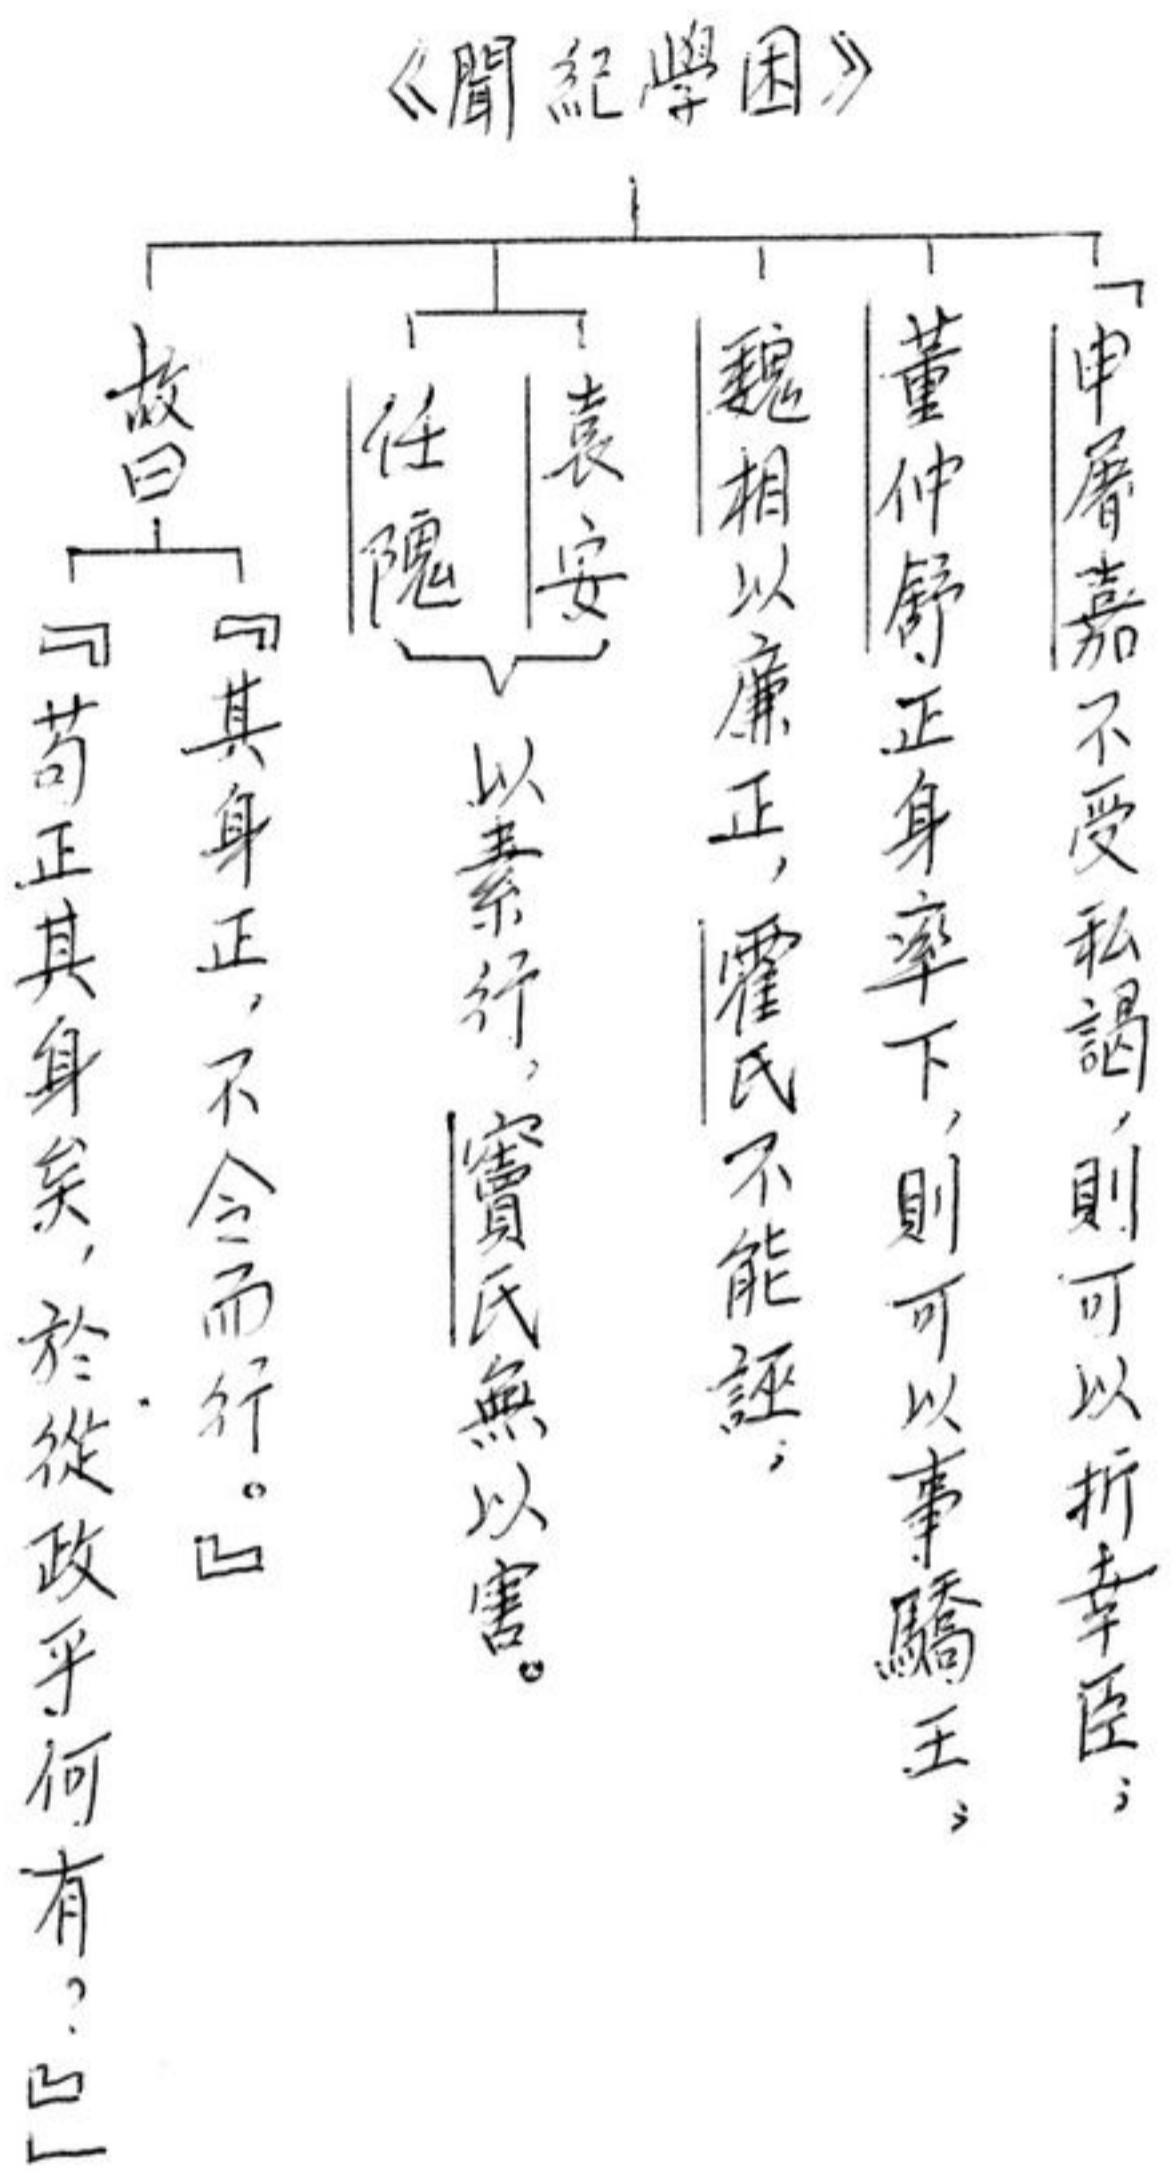 《困學紀聞》
「申屠嘉不受私謁，則可以折幸臣；
董仲舒正身率下，則可以事驕王；
魏相以廉正，霍氏不能誣；
袁安
任隗
以素行，竇氏無以害。
故曰
『其身正，不令而行。』
『苟正其身矣，於從政乎何有？』」